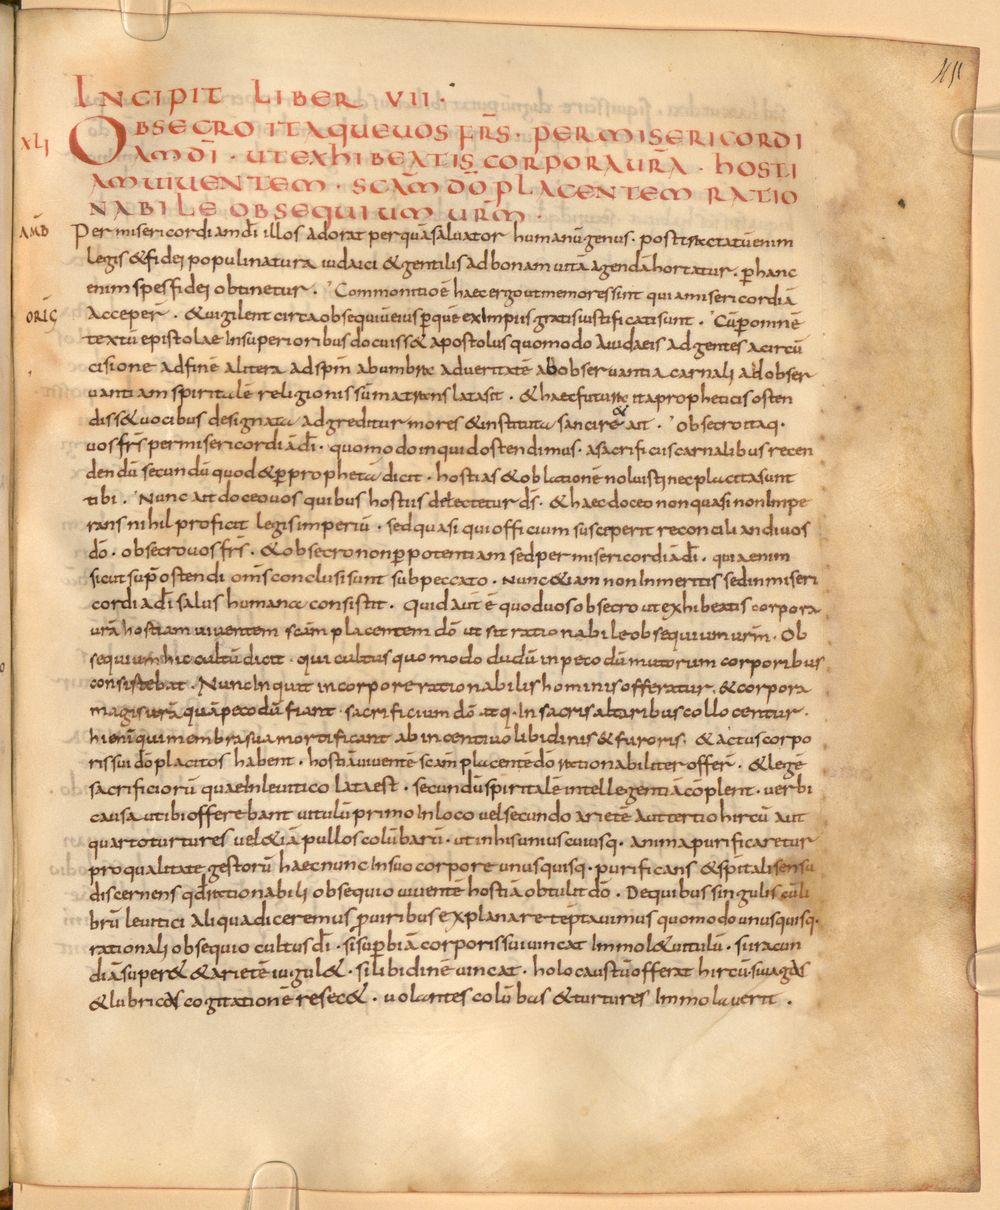 INCIPIT LIBER VII.
XLI OBSECRO ITAQUE UOS FR̄S. PER MISERICORDI
AM DĪ. UT EXHIBEATIS CORPORA UR̄A. HOSTI
AM UIUENTEM. SCĀM DŌ PLACENTEM RATIO
NABILE OBSEQUIUM UR̄M.
AMB̄ Per misericordiam dī illos adorat per quā saluator humanū genus. post tractatū enim
legis & fidei populi natura iudaici & gentilis ad bonam uitā agendā hortatur. p̄ hanc
enim spes fidei obtinetur. Commonitio ē haec ergo ut memores sint quia misericordiā
ORIḠ Acceper̄. & uigilent circa obsequiū eius p̄ quē ex impiis gratis iustificati sunt. Cū p̄ omnē
textū epistolae In superioribus docuiss& apostolus quomodo A iudaeis ad gentes a circū
cisione ad fidē a litera ad sp̄m ab umbra ad ueritatē ab obseruantia carnali ad obser
uantiam spiritalē religionis sūma translata sit. & haec futura ita propheticis osten
diss& uocibus designata adgreditur mores & instituta sancire & ait. Obsecro itaq.
uos fr̄s per misericordiā dī. quomodo inquid ostendimus. a sacrificiis carnalibus recen
dendū secundū quod & p̄ prophetā dicit. hostias & oblationē noluisti nec placita sunt
tibi. Nunc ait doceo uos quibus hostiis delectetur dš. & haec doceo non quasi non Impe
rans nihil proficit legis imperiū. sed quasi qui officium susceperit reconciliandi uos
dō. obsecro uos fr̄s. & obsecro non p̄ potentiam sed per misericordiā dī. quia enim
sicut sup̄ ostendi om̄s conclusi sunt sub peccato. Nunc &iam non In meritis sed in miseri
cordia dī salus humana consistit. Quid aut̄ ē quod uos obsecro ut exhibeatis corpora
ur̄a hostiam uiuentem scām placentem dō ut sit rationabile obsequium ur̄m. Ob
sequium hic cultū dicit. qui cultus quomodo dudū in pecodū mutorum corporibus
consistebat. Nunc Inquit in corpore rationabilis hominis offeratur. & corpora
magis ur̄a quā pecodū fiant. sacrificium dō. itq. In sacris altaribus collocentur.
hi enī qui membra sua mortificant ab incentiuo libidinis & furoris. & actus corpo
ris sui dō placitos habent. hostiā uiuentē scām placentē dō rationabiliter offer̄. & lege
sacrificiorū quae In leuitico lata est. secundū spiritalē intellegentiā cōplent. uerbi
causa ut ibi offerebant uitulū primo In loco uel secundo arietē aut tertio hircū aut
quarto turtures uel &iā pullos colūbarū. ut in his uniuscuiusq. anima purificaretur
pro qualitate gestorū haec nunc In suo corpore unusquisq. purificans & spitali sensu
discernens qd rationabili obsequio uiuentē hostiā obtulit dō. De quibus singulis cū li
brū leuitici aliqua diceremus p̄ uiribus explanare tēptauimus quomodo unusquisq.
rationali obsequio cultus dī. si sup̄biā corporis sui uincat Immol& uitulū. si iracun
diā super& & arietē iugul&. si libidinē uincat. holocaustū offerat hircū. si uagas
& lubricas cogitationē resec&. uolantes colūbas & turtures Immolauerit.